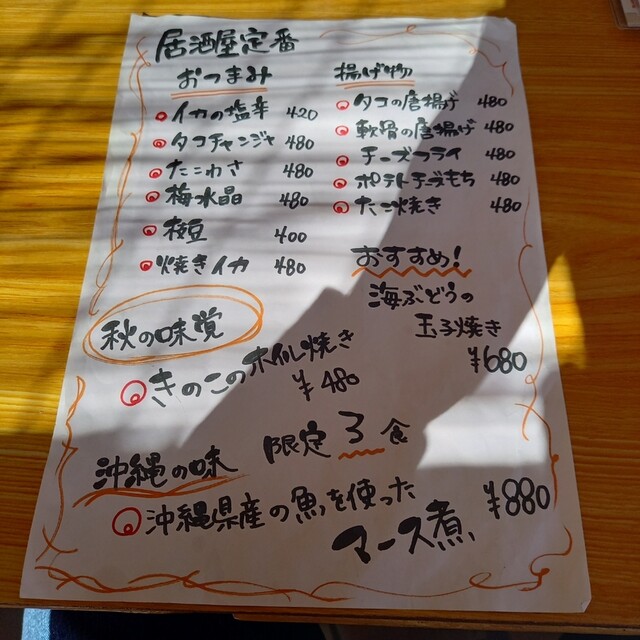 居酒屋定番
おつまみ
イカの塩辛 420
タコチャンジャ 480
たこわさ 480
梅水晶 480
枝豆 400
焼きイカ 480
揚げ物
タコの唐揚げ 480
軟骨の唐揚げ 480
チーズフライ 480
ポテトチーズもち 480
たこ焼き 480
おすすめ!
海ぶどうの
玉子焼き
¥680
秋の味覚
きのこのホイル焼き
¥480
沖縄の味 限定3食
沖縄県産の魚を使った
マース煮 ¥880